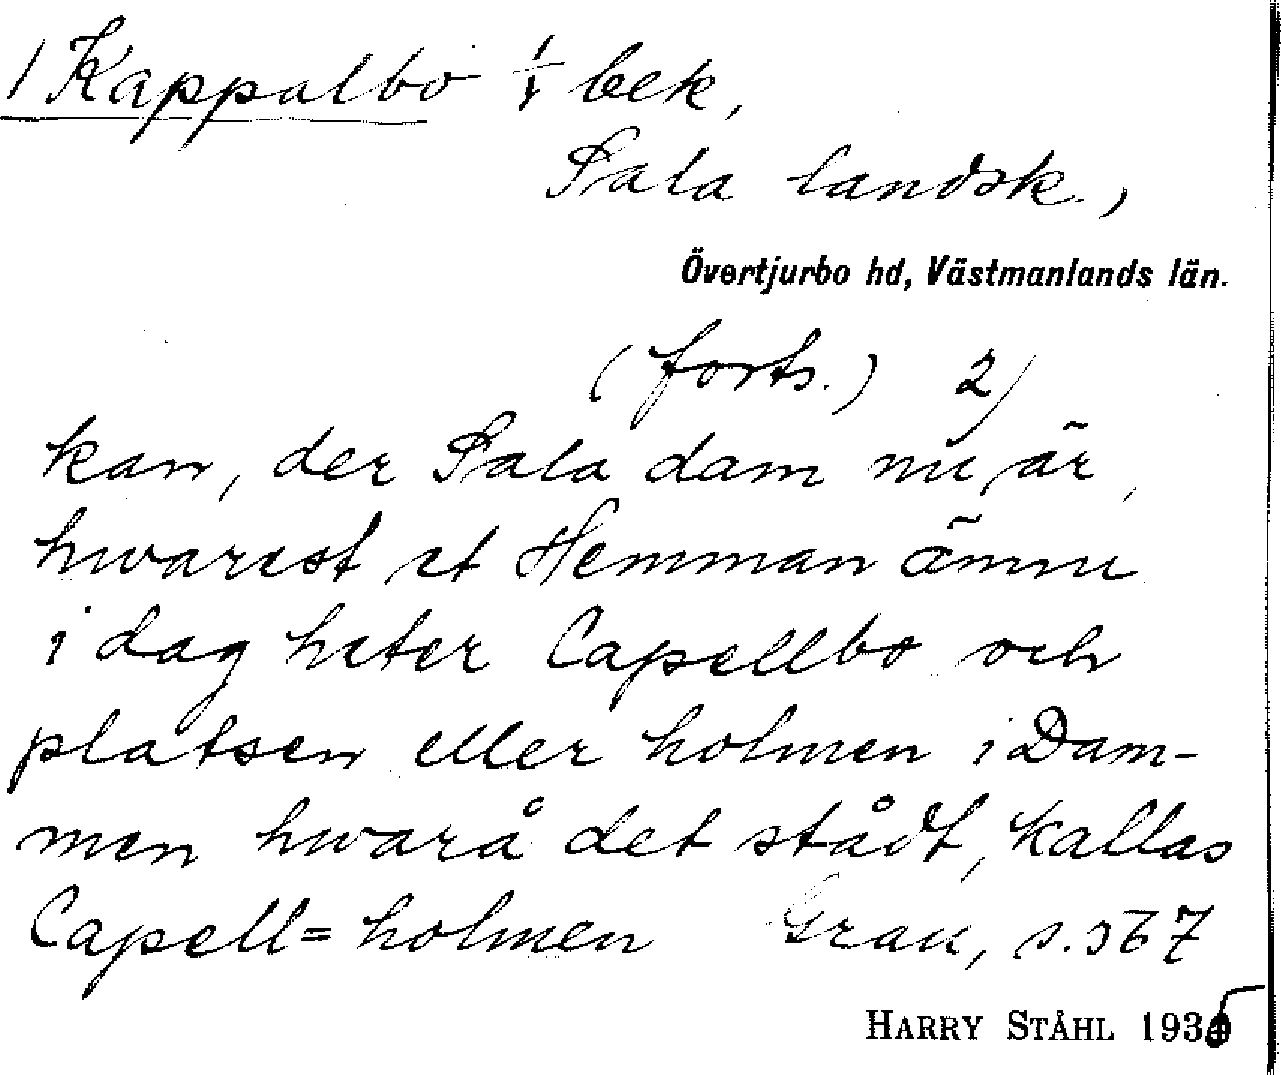 / Kappalbo 1/1 bek,
Sala landsk.,
Övertjurbo hd, Västmanlands län.
(forts.) 2)
kan, der Sala dam nu är,
hwarest et Hemman ännu
i dag heter Capellbo och
platsen eller holmen i Dam-
men hwarå det stådt, kallas
Capell=holmen Grau, s. 567
HARRY STÅHL 1935